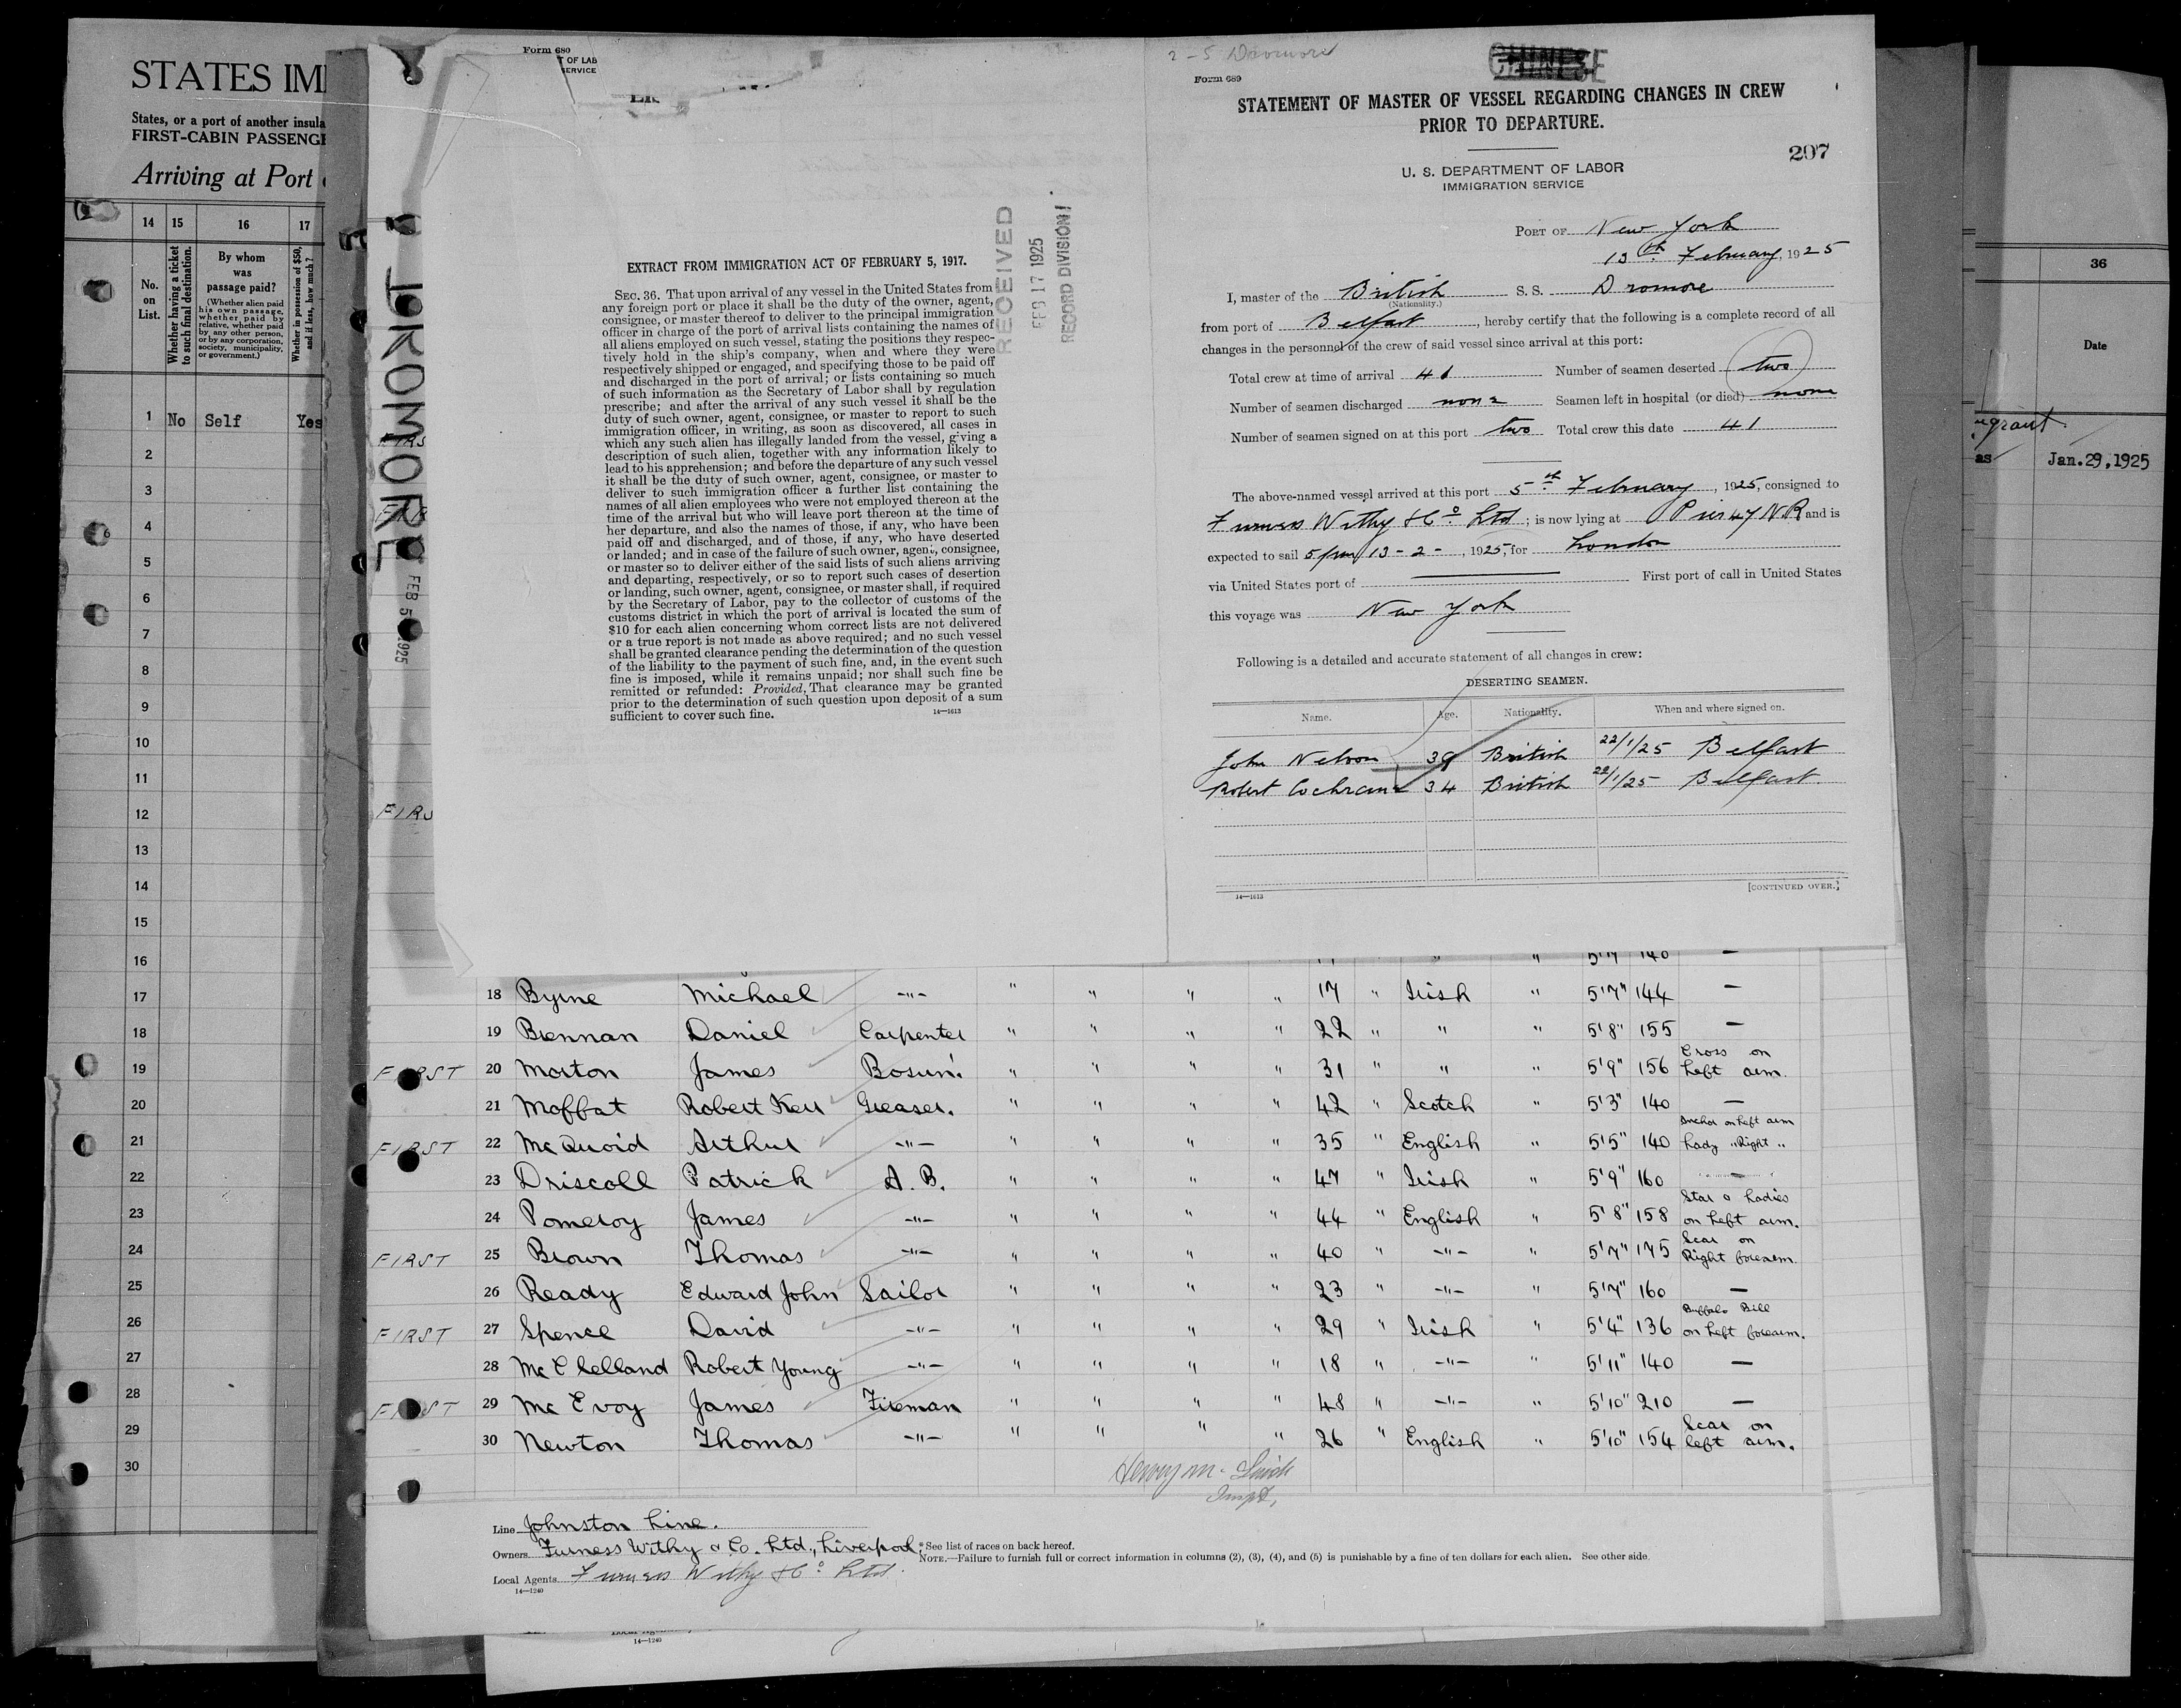 STATES IM
States, or a port of another insula
FIRST-CABIN PASSENGE
Arriving at Port
14 15 16 17
No. on List.
Whether having a ticket to such final destination.
By whom was passage paid?
(Whether alien paid his own passage, whether paid by relative, whether paid by any other person, or by any corporation, society, municipality, or government.)
Whether in possession of $50, and if less, how much?
1 No Self Yes
2
3
4
5
6
7
8
9
10
11
12
13
14
15
16
17
18
19
20
21
22
23
24
25
26
27
28
29
30
DROMORE
FEB 5 1925
Form 680
T OF LAB
SERVICE
EXTRACT FROM IMMIGRATION ACT OF FEBRUARY 5, 1917.
SEC. 36. That upon arrival of any vessel in the United States from
any foreign port or place it shall be the duty of the owner, agent,
consignee, or master thereof to deliver to the principal immigration
officer in charge of the port of arrival lists containing the names of
all aliens employed on such vessel, stating the positions they respec-
tively hold in the ship's company, when and where they were
respectively shipped or engaged, and specifying those to be paid off
and discharged in the port of arrival; or lists containing so much
of such information as the Secretary of Labor shall by regulation
prescribe; and after the arrival of any such vessel it shall be the
duty of such owner, agent, consignee, or master to report to such
immigration officer, in writing, as soon as discovered, all cases in
which any such alien has illegally landed from the vessel, giving a
description of such alien, together with any information likely to
lead to his apprehension; and before the departure of any such vessel
it shall be the duty of such owner, agent, consignee, or master to
deliver to such immigration officer a further list containing the
names of all alien employees who were not employed thereon at the
time of the arrival but who will leave port thereon at the time of
her departure, and also the names of those, if any, who have been
paid off and discharged, and of those, if any, who have deserted
or landed; and in case of the failure of such owner, agent, consignee,
or master so to deliver either of the said lists of such aliens arriving
and departing, respectively, or so to report such cases of desertion
or landing, such owner, agent, consignee, or master shall, if required
by the Secretary of Labor, pay to the collector of customs of the
customs district in which the port of arrival is located the sum of
$10 for each alien concerning whom correct lists are not delivered
or a true report is not made as above required; and no such vessel
shall be granted clearance pending the determination of the question
of the liability to the payment of such fine, and, in the event such
fine is imposed, while it remains unpaid; nor shall such fine be
remitted or refunded: Provided, That clearance may be granted
prior to the determination of such question upon deposit of a sum
sufficient to cover such fine.
14—1613
RECEIVED
FEB 17 1925
RECORD DIVISION
2-5 Dromore
CHINESE
Form 689
STATEMENT OF MASTER OF VESSEL REGARDING CHANGES IN CREW
PRIOR TO DEPARTURE.
297
U. S. DEPARTMENT OF LABOR
IMMIGRATION SERVICE
PORT OF New York
13th February, 1925
I, master of the British S. S. Dromore
(Nationality.)
from port of Belfast, hereby certify that the following is a complete record of all
changes in the personnel of the crew of said vessel since arrival at this port:
Total crew at time of arrival 41 Number of seamen deserted two
Number of seamen discharged none Seamen left in hospital (or died) none
Number of seamen signed on at this port two Total crew this date 41
The above-named vessel arrived at this port 5th February, 1925, consigned to
Furness Withy & Co. Ltd; is now lying at Pier 47 NR and is
expected to sail 5 pm 13-2-, 1925, for London
via United States port of First port of call in United States
this voyage was New York
Following is a detailed and accurate statement of all changes in crew:
DESERTING SEAMEN.
Name. Age. Nationality. When and where signed on.
John Nelson 39 British 22/1/25 Belfast
Robert Cochrane 34 British 22/1/25 Belfast
[CONTINUED OVER.]
14—1613
36
Date
grant
as Jan.29,1925
5'7 140 —
18 Byrne Michael -"- " " " " 17 " Irish " 5'7" 144 —
19 Brennan Daniel Carpenter " " " " 22 " " " 5'8" 155 —
FIRST 20 Morton James Bosun. " " " " 31 " " " 5'9" 156 Cross on Left arm.
21 Moffat Robert Kerr Greaser. " " " " 42 " Scotch " 5'3" 140 —
FIRST 22 McQuoid Arthur -"- " " " " 35 " English " 5'5" 140 Anchor on left arm Lady "Right "
23 Driscoll Patrick A. B. " " " " 47 " Irish " 5'9" 160 —
24 Pomeroy James -"- " " " " 44 " English " 5'8" 158 Star & Ladies on Left arm.
FIRST 25 Brown Thomas -"- " " " " 40 " -"- " 5'7" 175 Scar on Right forearm.
26 Ready Edward John Sailor " " " " 23 " -"- " 5'7" 160 —
FIRST 27 Spence David -"- " " " " 29 " Irish " 5'4" 136 Buffalo Bill on Left forearm.
28 McClelland Robert Young -"- " " " " 18 " -"- " 5'11" 140 —
FIRST 29 McEvoy James Fireman " " " " 48 " -"- " 5'10" 210 —
30 Newton Thomas -"- " " " " 26 " English " 5'10" 154 Scar on left arm.
Line Johnston Line.
Owners Furness Withy & Co. Ltd., Liverpool.
*See list of races on back hereof.
NOTE.—Failure to furnish full or correct information in columns (2), (3), (4), and (5) is punishable by a fine of ten dollars for each alien. See other side.
Local Agents Furness Withy & Co. Ltd.
14—1240
14—1240